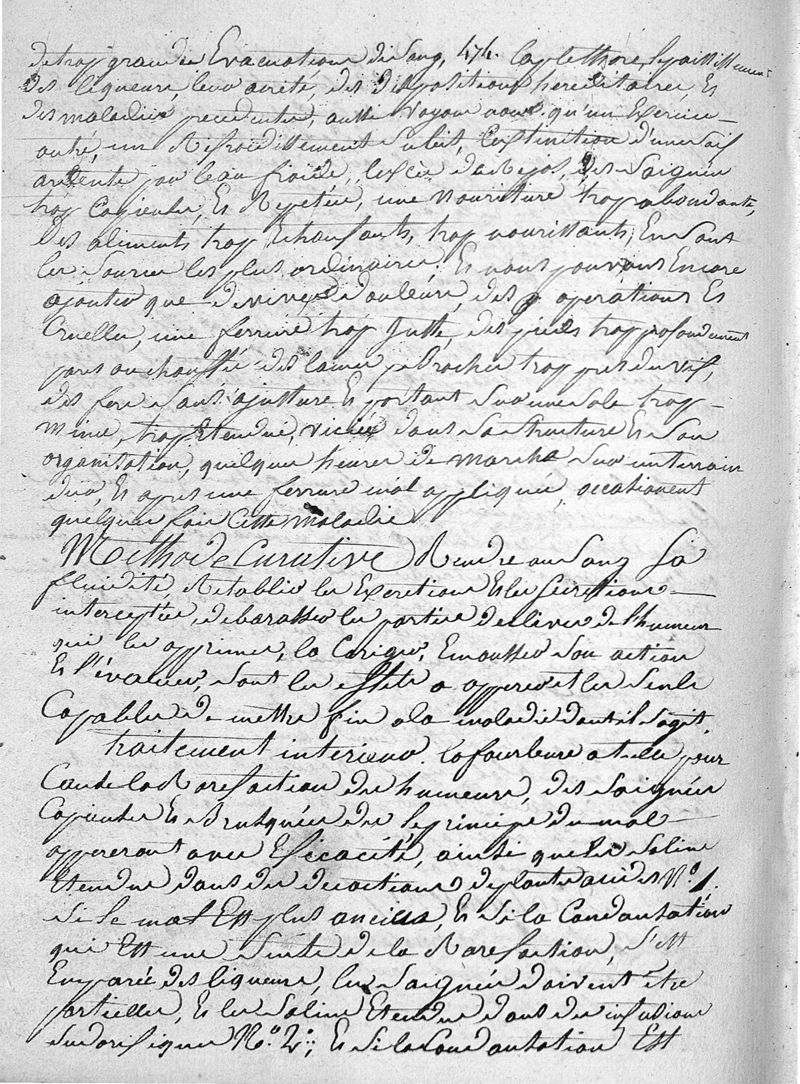 de trop grandes Evacuations de Sang, 474. la plethore, l'epaississement
des liqueurs, leur acreté, des dispositions hereditaires, Es
des maladies precedentes, aussi voyons nous qu'un Exercice
outré, un Refroidissement Subit, l'Extinction d'une Soif
ardente par l'eau froide, l'excès de Repos, des Saignées
trop Copieuses, Es Repetées, une nourriture trop abondante,
des aliments trop Echaufants, trop nourissants, En Sont
les Sources les plus ordinaires. Es nous pouvons Encore
ajouter que de vives douleurs, des operations Es
Cruelles, une ferrure trop juste, des pieds trop profondement
parés ou chauffés des lames Brochées trop pres du vif,
des fers Sans ajusture Es portant Sur une Sole trop
mince, trop Etendue, viciée dans Sa Structure Es Son
organisation, quelques heures de marche Sur un terrain
dur, Es apres une ferrure mal appliquée, occationent
quelques fois Cette maladie
Methode Curative Rendre au Sang Sa
fluidité, Retablir les Excretions Es les Secretions
interceptées, debarasser les parties de l'humeur
qui les opprime, la Coriger, Emousser Son action
Es l'évacuer, sont les effets a opperer Es les Seuls
Capables de mettre fin a la maladie dont il S'agit.
traitement interieur. la fourbure a t'elle pour
Cause la Rarefaction des humeurs, des Saignées
Copieuses Es Brusquées des le principe du mal
oppereront avec Eficacité, ainsi que les Salins
Etendus dans des decoctions de plantes acides N.º 1.
Si le mal Est plus ancien, Es Si la Condansation
qui Est une Suite de la Rarefaction, S'est
Emparée des liqueurs, les Saignées doivent être
partielles, Es les Salins Etendus dans des infusions
Sudorifiques N.º 2.; Es Si la Condansation Est